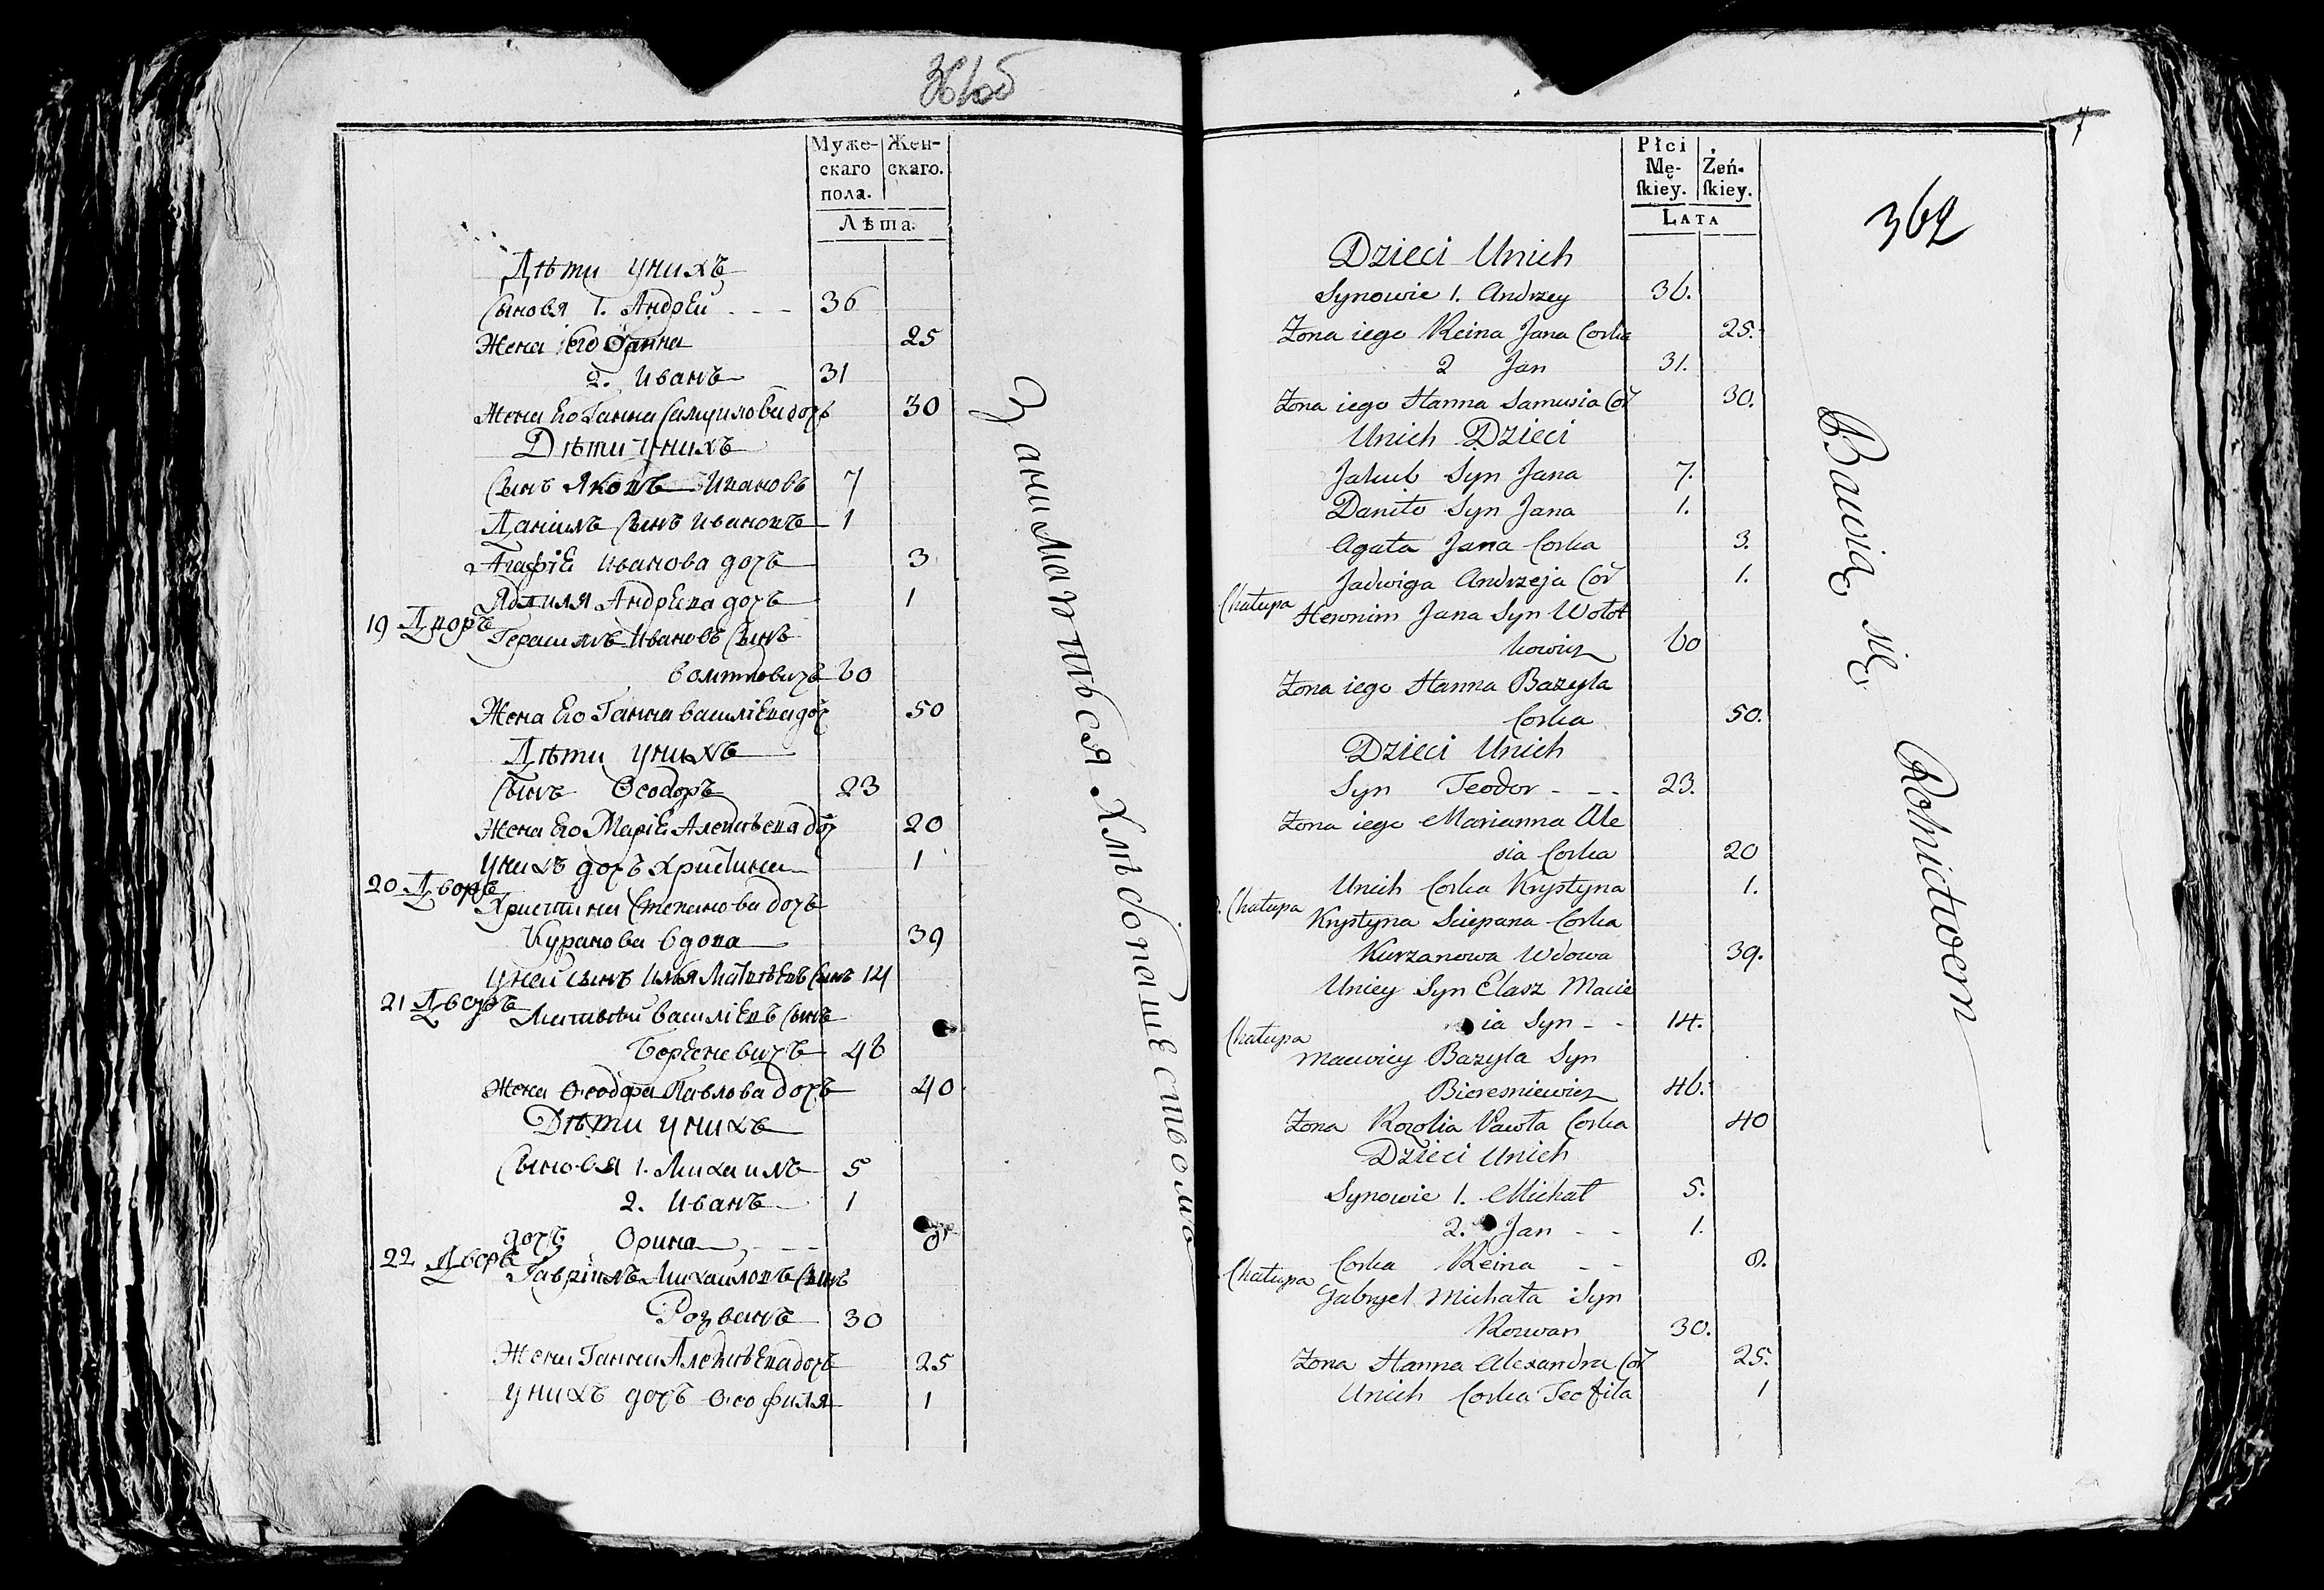 361об
Муже-
скаго
пола.
Жен-
скаго.
Лѣта.
Дѣти унихъ
Сыновя 1. Андрей - - - 36
Жена его Орина 25
2. Иванъ 31
Жена Его Ганна Самуилова дочь 30
Дѣти унихъ
Сынъ Яковъ Ивановъ 7
Данiилъ Сынъ Ивановъ 1
Агафiя Иванова дочь 3
Андреева дочь 1
19 Дворъ
Герасимъ Ивановъ Сынъ
60
Жена Его Ганна Василiева доч 50
Дѣти унихъ
Сынъ Ѳеодоръ 23
Жена Его Марiя Алексѣева доч 20
унихъ дочь Христина 1
20 Дворъ
Христина Степанова дочь
Куранова вдова 39
уней сынъ Илья Матвѣевъ Сынъ 14
21 Дворъ
Матвѣй Василiевъ Сынъ
Береневичъ 46
Жена Павлова дочь 40
Дѣти унихъ
Сыновя 1. Михаилъ 5
2. Иванъ 1
дочь Орина - - - 8
22 Дворъ
Гаврiилъ Михайловъ Сынъ
Розванъ 30
Жена Ганна Алексѣева дочь 25
унихъ дочь Ѳеофиля 1
Занимаются хлѣбопашествомъ
7
Płci
Mę-
ſkiey.
Żeń-
ſkiey.
LATA
362
Dzieci Unich
Synowie 1. Andrzey 36.
Zona iego Reina Jana Corka 25.
2 Jan 31.
Zona iego Hanna Samusia Cor 30.
Unich Dzieci
Jakub Syn Jana 7.
Daniło Syn Jana 1.
Agata Jana Corka 3.
Jadwiga Andrzeja Cor 1.
Chałupa
Heronim Jana Syn Wołot
kowicz 60
Zona iego Hanna Bazyla
Corka 50.
Dzieci Unich
Syn Teodor - - - 23.
Zona iego Marianna Ale
sia Corka 20
Unich Corka Krystyna 1.
Chałupa
Krystyna Sciepana Corka
Kurzanowa Wdowa 39.
Uniey Syn Elasz Macie
ia Syn - - 14.
Chałupa
Maciey Bazyla Syn
Bieresniewicz 46.
Zona Rozolia Pawła Corka 40
Dzieci Unich
Synowie 1. Michał 5.
2. Jan - - 1.
Corka Reina - - 8.
Chałupa
Gabryel Michała Syn
Rozwan 30.
Zona Hanna Alexandra Cor 25.
Unich Corka Teofila 1
Bawią się Rolnictwem